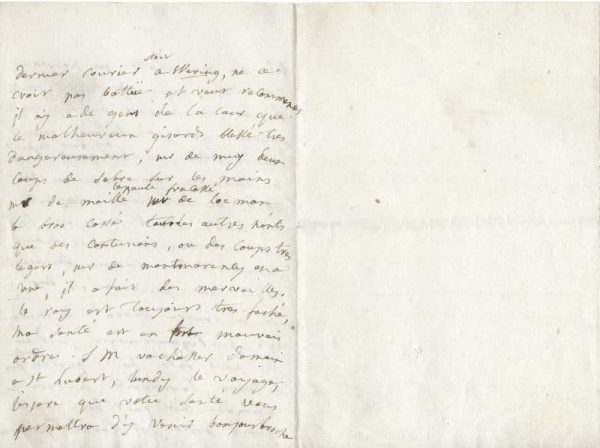 doit
dernier courier a Wering, ne ce
croit pas battüe et veut recommences
il n'y a de gens de la cour que
le malheureux gisords blessé tres
dangereusement, mr de muy deux
coups de sabre sur les mains
mr de maille lepaule fracassé mr de
le bras cassé tous les autres n'onts
que des contusions, ou des coups tres
legers, mr de montmorency en a
une, il a fait des merveilles.
le roy est toujours tres faché,
ma santé est en fort mauvais
ordre. S M va chasser demain
a st hubert, lundy le voyage,
jespere que votre santé vous
permettra d'y venir bonjour